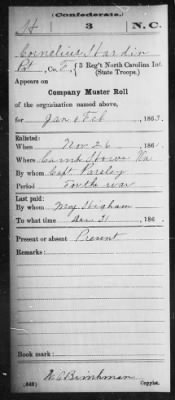 (Confederate.)
H 3 N.C.
Cornelius Hardin
Pvt, Co. F, 3 Reg't North Carolina Inf.
(State Troops.)
Appears on
Company Muster Roll
of the organization named above,
for Jan & Feb, 1863.
Enlisted:
When Nov 26, 186 .
Where Camp Va
By whom Capt. Parsley
Period For the war
Last paid:
By whom Maj. Higham
To what time Dec 31, 186 .
Present or absent Present
Remarks:
Book mark:
(642) Copyist.